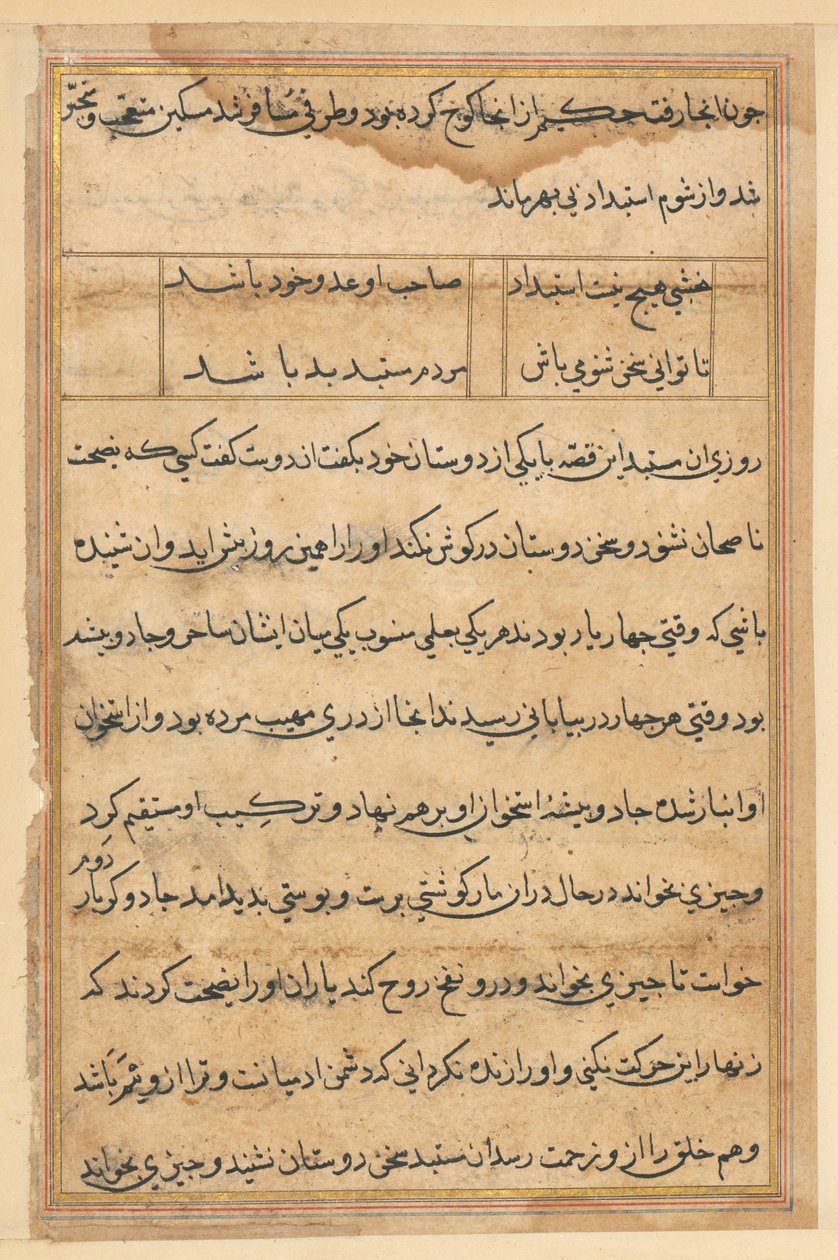 جون انجا رفت حکیم از انجا کوج کرده بود و طرفی مسافر شد مسکین متعجب و متحیر
شد و از شوم استبداد بی بهر ماند
نخشبی هیج نیت استبداد صاحب او عدو خود باشد
تا توانی سخن شنو می باش مردم مستبد بد باشد
روزی ان مستبد این قصّه با یکی از دوستان خود بکفت ان دوست کفت کسی که نصیحت
ناصحان نشنود و سخن دوستان در کوش نکند او را همین روز بیش اید و ان شنیده
باشی که وقتی جهار یار بودند هر یکی بعلمی منسوب یکی میان ایشان ساحر و جادو بیشه
بود وقتی هر جهار در بیابانی رسیدند انجا ازدری مهیب مرده بود و از استخوان
او انبار شده جادو بیشهٔ استخوان او بر هم نهاد و ترکیب او مستقیم کرد
و جیزی بخواند در حال دران مار کوشتی برست و بوستی بدید امد جادوکر بار دوم
خواست تا جیزی بخواند و درو نفخ روح کند یاران او را نصیحت کردند که
زنهار این حرکت نکنی و او را زنده نکردانی که دشمن ادمیانت و ترا ازو بیم باشد
و هم خلق را ازو زحمت رسد ان مستبد سخن دوستان نشیند و جیزی بخواند